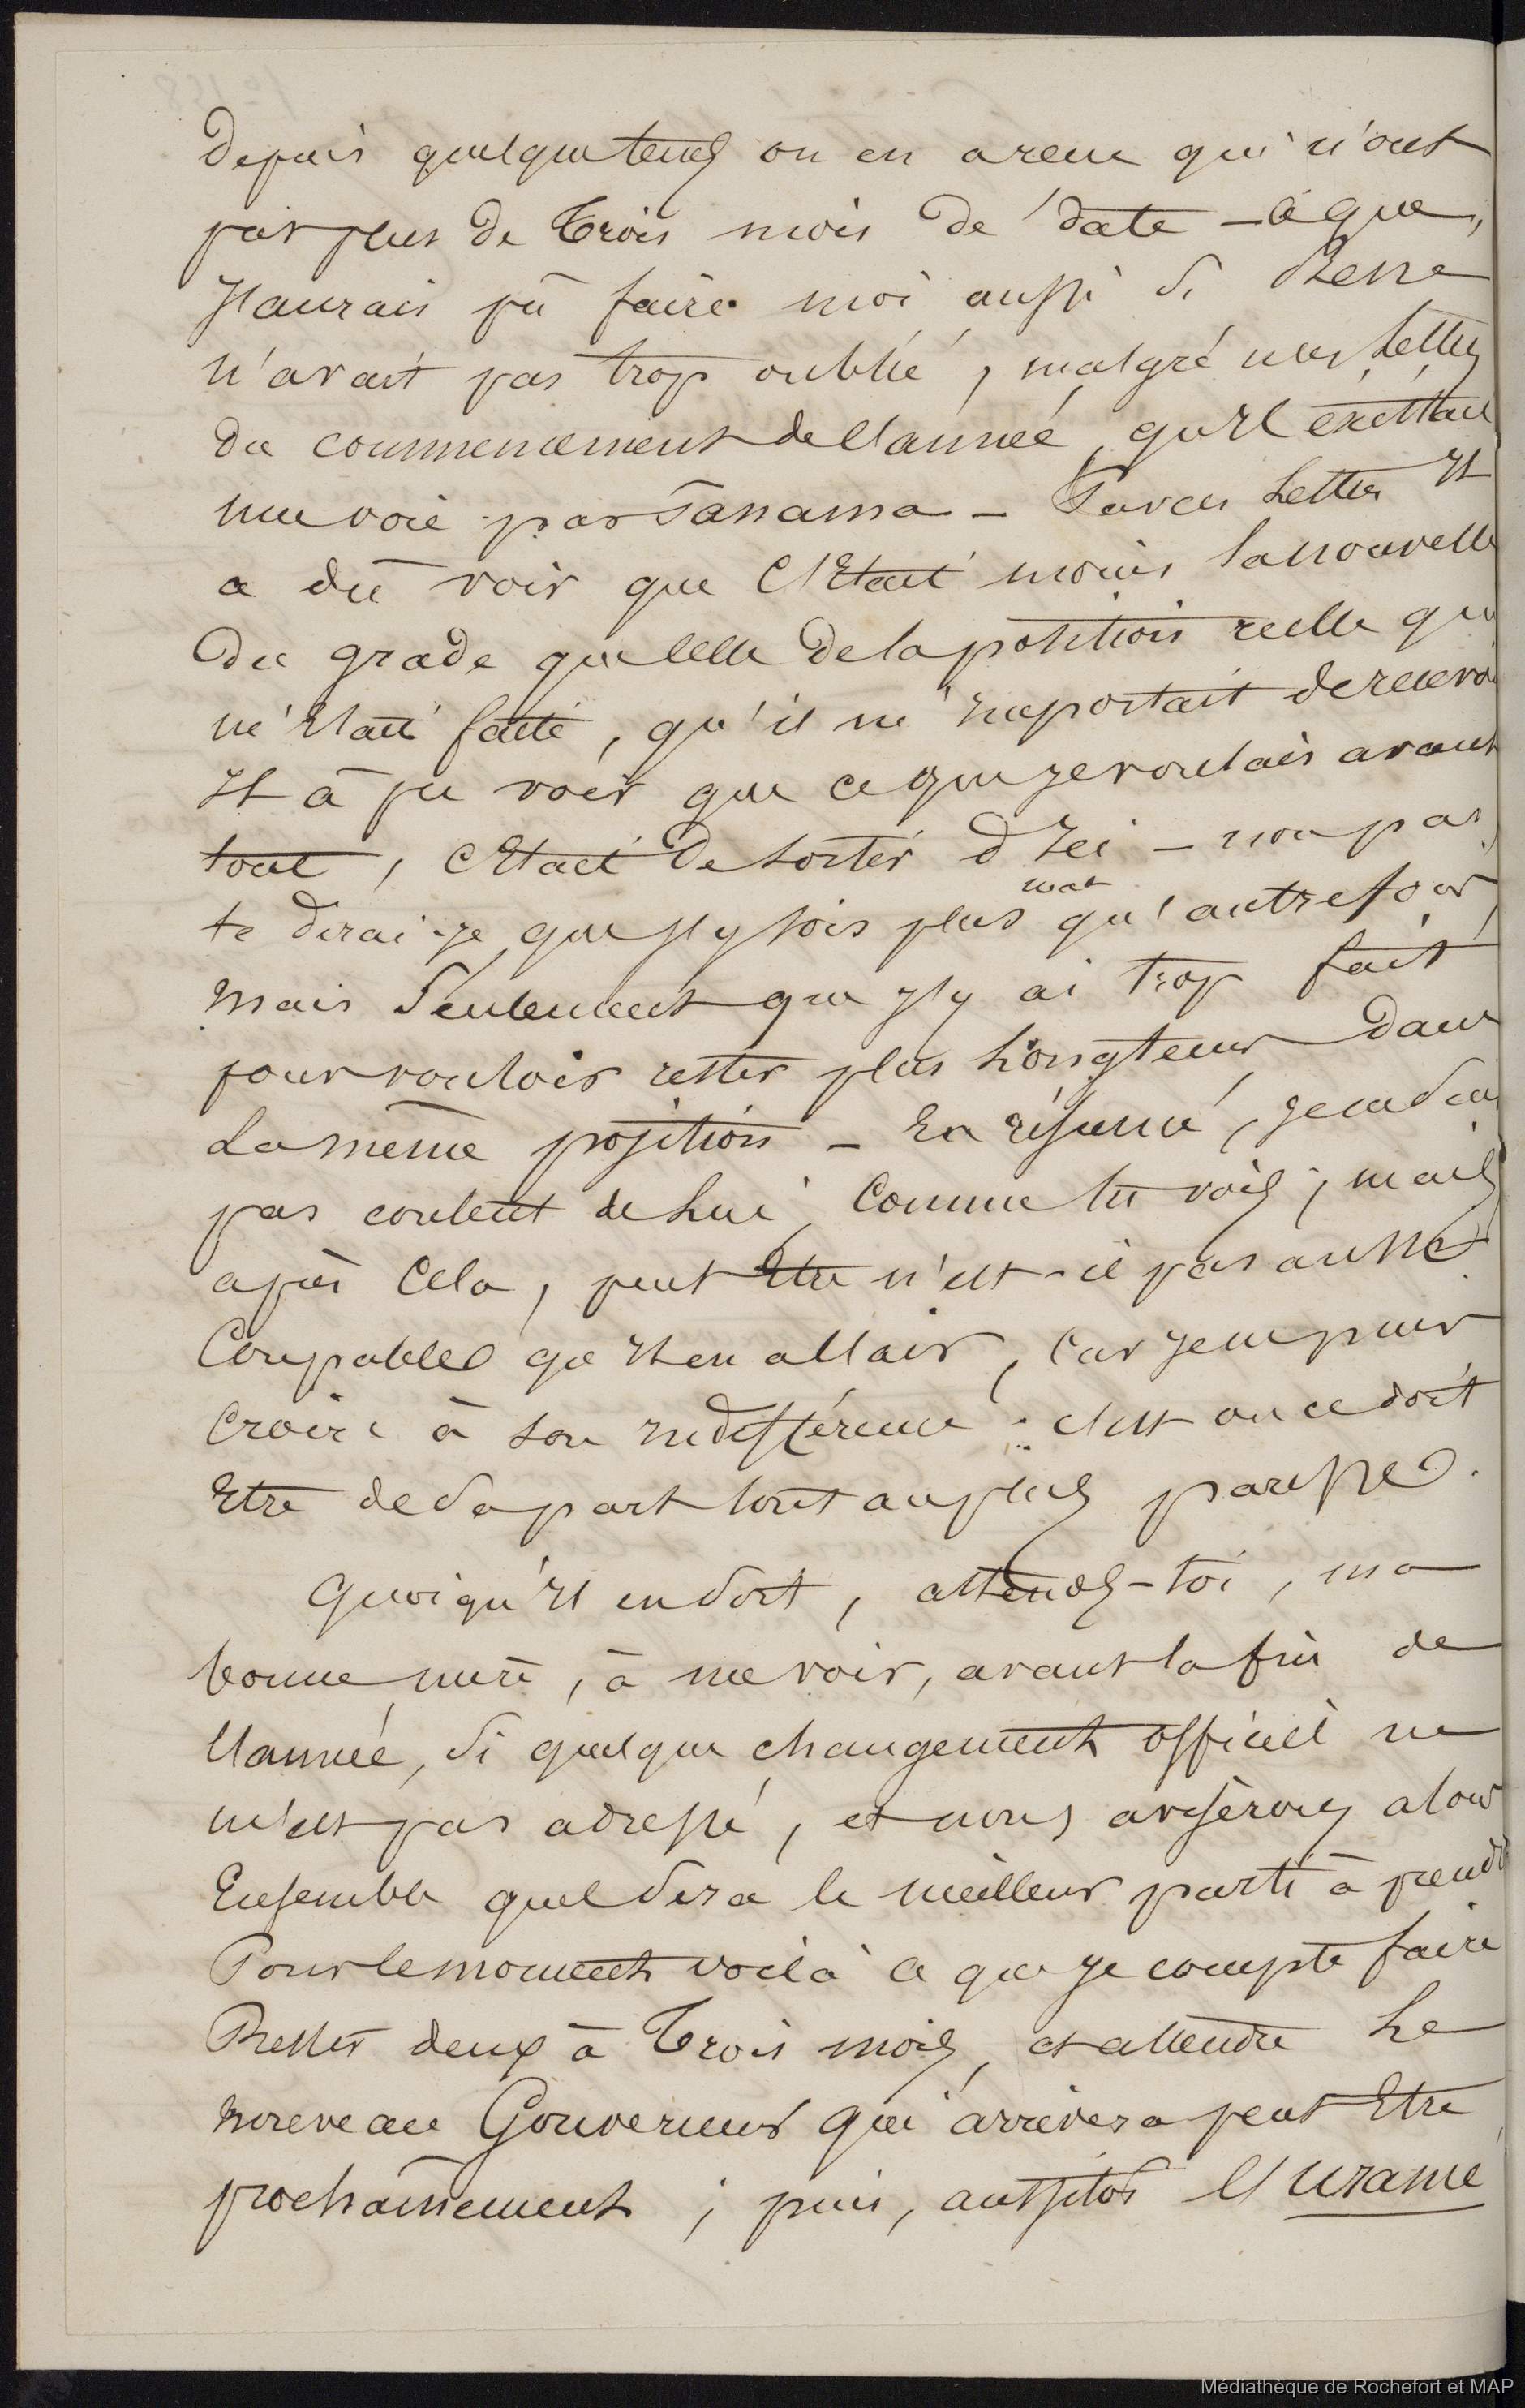 depuis quelque temps on en a reçu qui n'ont
pas plus de trois mois de date - ce que
j'aurais pû faire moi aussi si
n'avait pas trop oublié, malgré mes lettres
du commencement de l'année, qu'il existait
une voie par Panama - Par ces lettres il
a dû voir que c'était moins la nouvelle
du grade que celle de la position réelle qui
m'était faite, qu'il m'importait de recevoir
Il à pu voir que ce que je voulais avant
tout, c'était de sortir d'ici - non pas
te dirai-je que j'y sois plus mal qu'autrefois,
mais seulement que j'y ai trop fait
pour vouloir rester plus longtems dans
la même position - En résumé, je ne suis
pas content de lui, comme tu vois; mais
après cela, peut être n'est-il pas aussi
coupable qu'il en a l'air, car je ne puis
croire à son indifférence: c'est ou ce doit
être de sa part tout au plus paresse.
Quoiqu'il en soit, attends-toi, ma
bonne mère, à me voir, avant la fin de
l'année, si quelque changement officiel ne
m'est pas adressé, et nous aviserons alors
Ensemble quel sera le meilleur parti à prendre
Pour le moment voilà ce que je compte faire
Rester deux à trois mois, et attendre le
nouveau Gouverneur qui arrivera peut être
prochainement; puis, aussitôt l'Uranie
Médiathèque de Rochefort et MAP